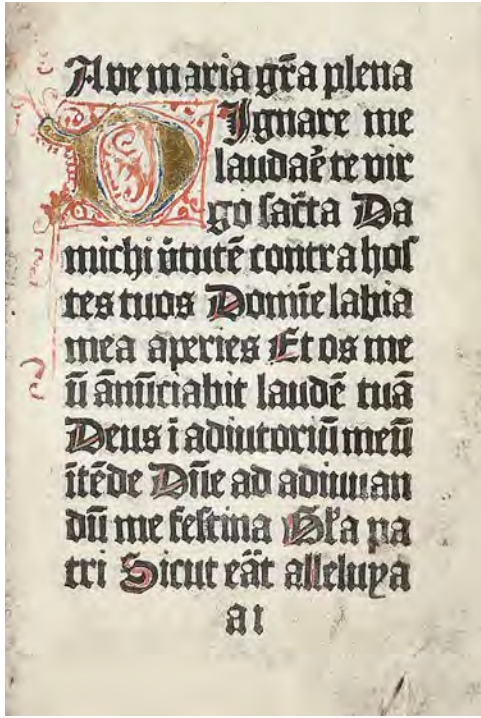 Ave maria gr̄a plena
DIgnare me
laudar̄e te vir
go sac̄ta Da
michi v̄tutē contra hos
tes tuos Domīe labia
mea aperies Et os me
ū ānūciabit laudē tuā
Deus ī adiutoriū meū
ītēde Dn̄e ad adiuuan
dū me festina Gl̄a pa
tri Sicut eāt alleluya
a I